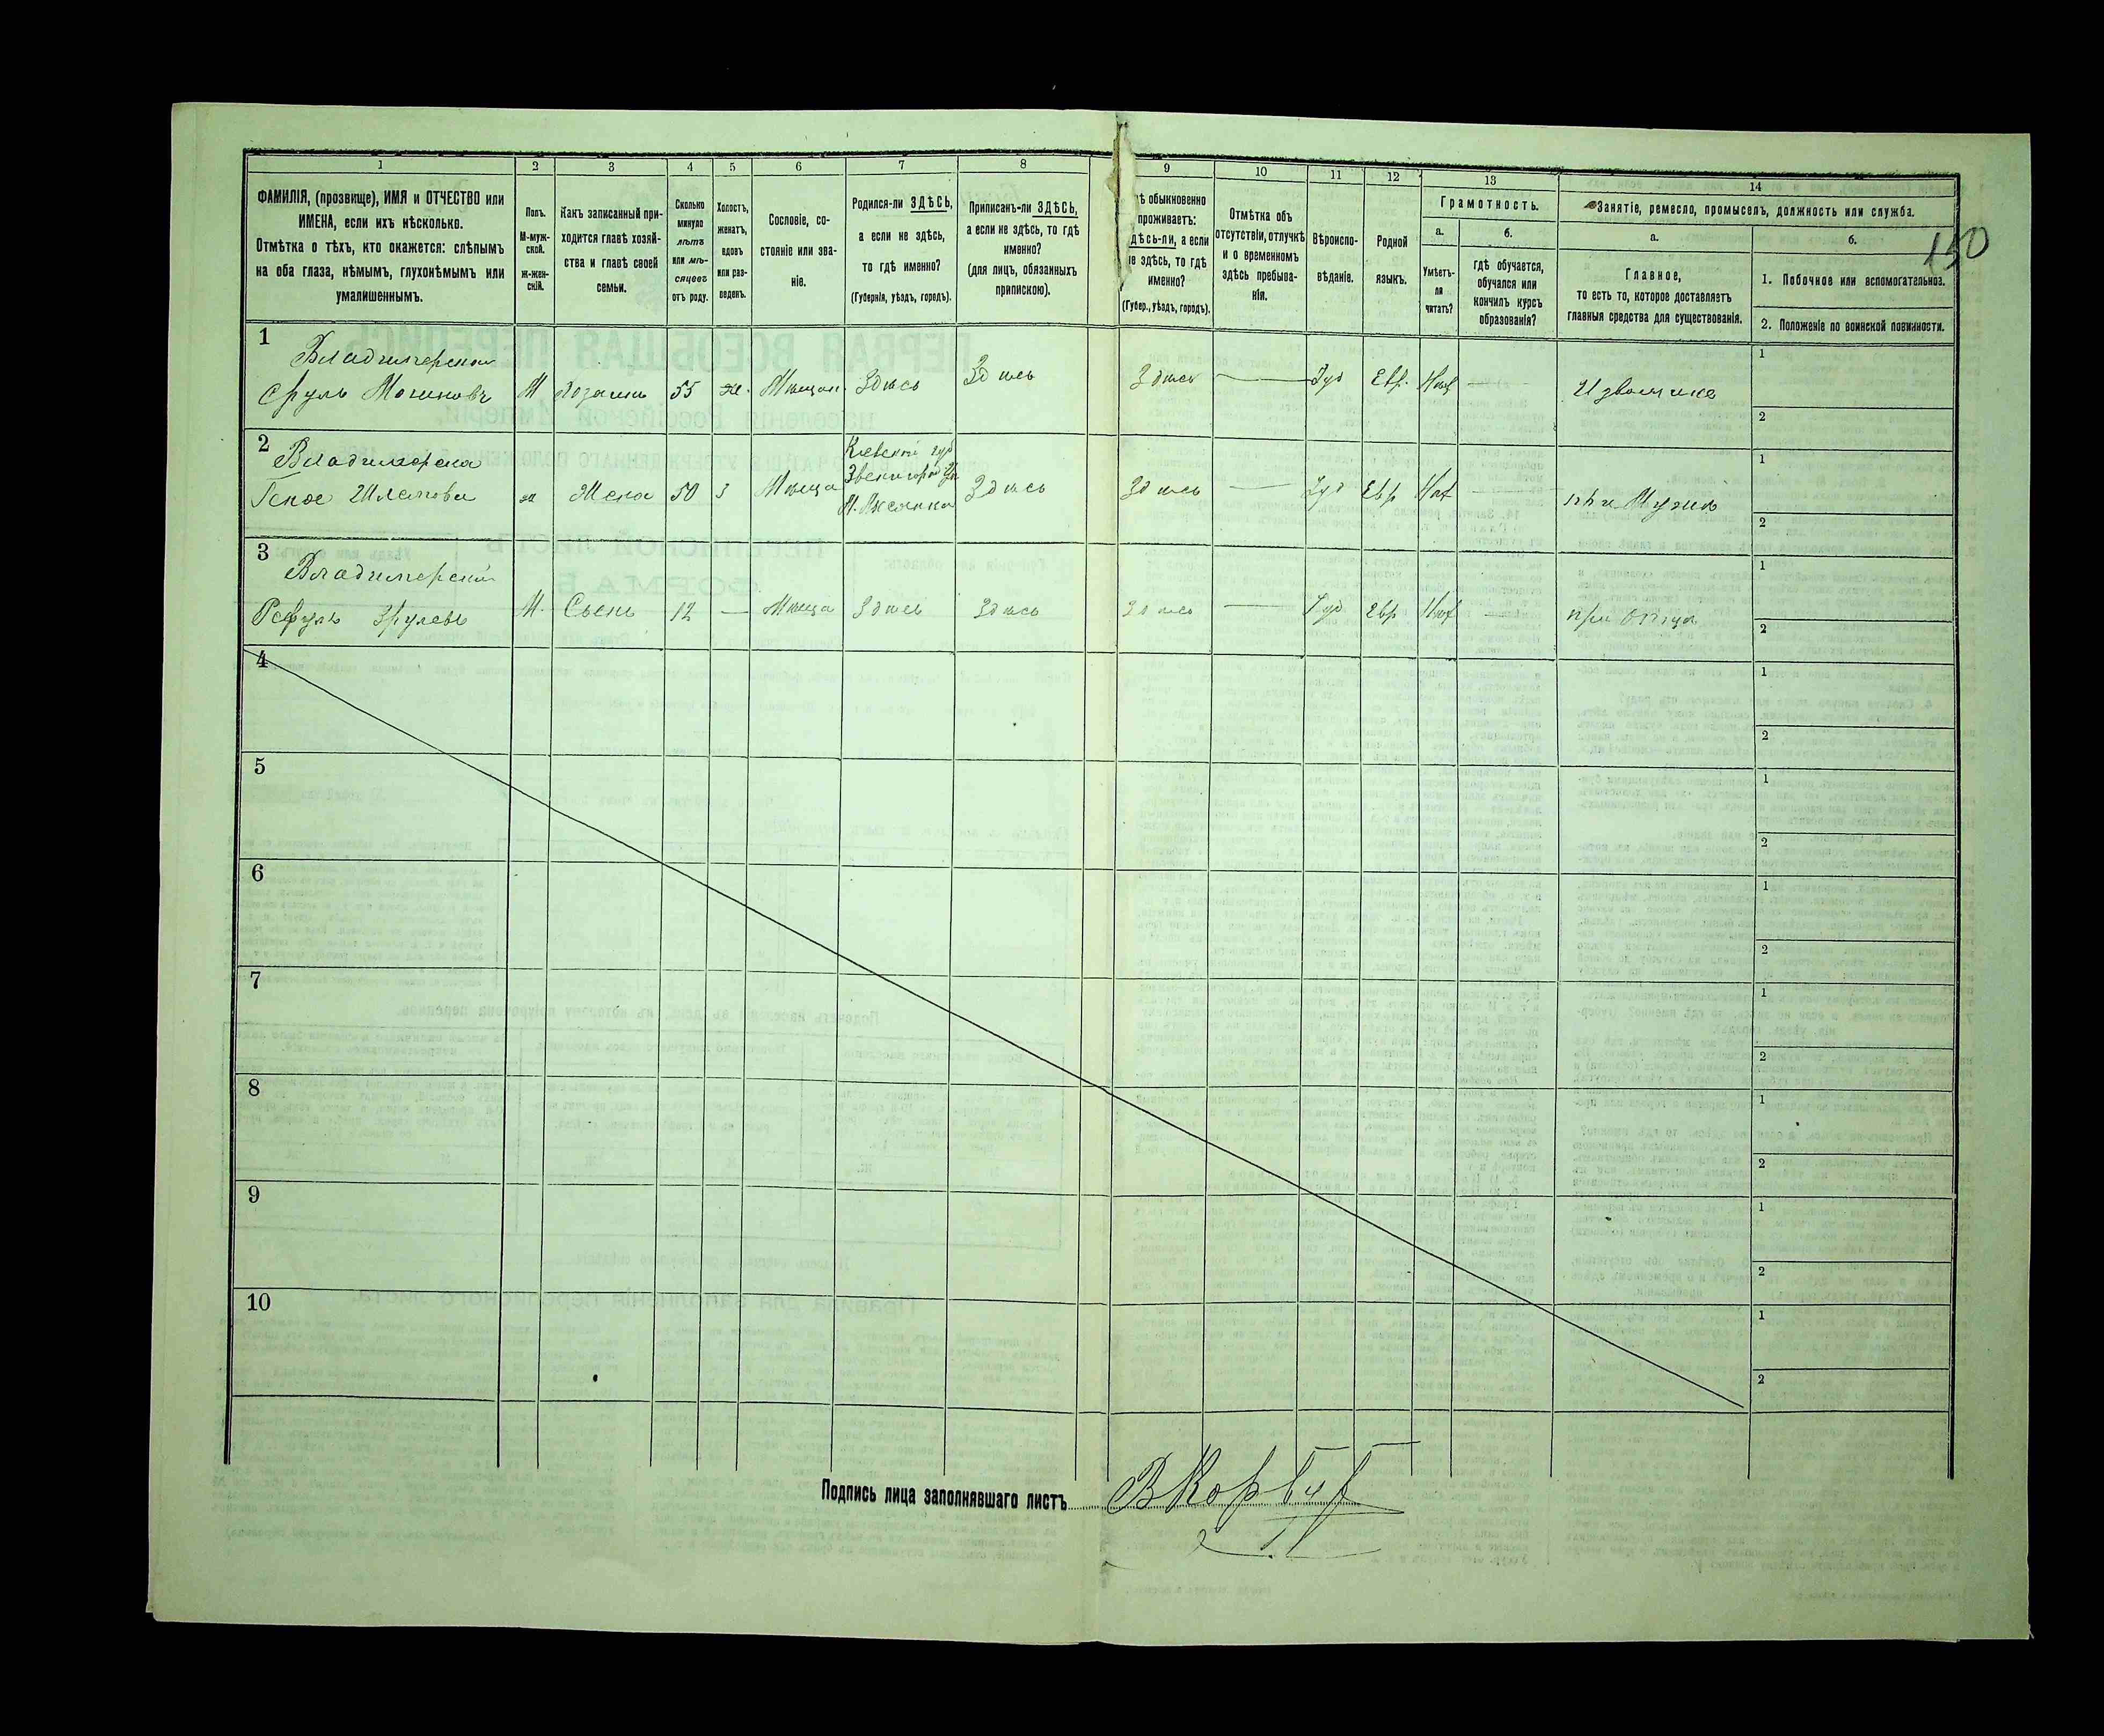 1 2 3 4 5 6 7 8 9 10 11 12 13 14
ФАМИЛІЯ, (прозвище), ИМЯ и ОТЧЕСТВО или
ИМЕНА, если ихъ нѣсколько.
Отмѣтка о тѣхъ, кто окажется: слѣпымъ
на оба глаза, нѣмымъ, глухонѣмымъ или
умалишеннымъ.
Полъ.
М-муж-
ской.
Ж-жен-
скій.
Какъ записанный при-
ходится главѣ хозяй-
ства и главѣ своей
семьи.
Сколько
минуло
лѣтъ
или мѣ-
сяцевъ
отъ роду.
Холостъ,
женатъ,
вдовъ
или раз-
веденъ.
Сословіе, со-
стояніе или зва-
ніе.
Родился-ли ЗДѢСЬ,
а если не здѣсь,
то гдѣ именно?
(Губернія, уѣздъ, городъ).
Приписанъ-ли ЗДѢСЬ,
а если не здѣсь, то гдѣ
именно?
(для лицъ, обязанныхъ
припискою).
ѣ обыкновенно
проживаетъ:
дѣсь-ли, а если
не здѣсь, то гдѣ
именно?
(Губер., уѣздъ, городъ).
Отмѣтка объ
отсутствіи, отлучкѣ
и о временномъ
здѣсь пребыва-
ніи.
Вѣроиспо-
вѣданіе.
Родной
языкъ.
Грамотность.
а.
Умѣетъ-
ли
читать?
б.
гдѣ обучается,
обучался или
кончилъ курсъ
образованія?
Занятіе, ремесло, промыселъ, должность или служба.
а.
Главное,
то есть то, которое доставляетъ
главныя средства для существованія.
б.
1. Побочное или вспомогательное.
2. Положеніе по воинской повинности.
150
1
Сруль М 55 ж. Мѣщан. Здѣсь Здѣсь Здѣсь Іуд Евр. Нѣт
1
2
2
Кіевской губ
ж Жена 50 з Мѣща Здѣсь Здѣсь Іуд Евр Нѣт при Мужѣ
1
2
3
М. Сынъ 12 Мѣща Здѣсь Здѣсь Здѣсь Іуд Евр Нѣт при отцѣ
1
2
4
1
2
5
1
2
6
1
2
7
1
2
8
1
2
9
1
2
10
1
2
Подпись лица заполнявшаго листъ